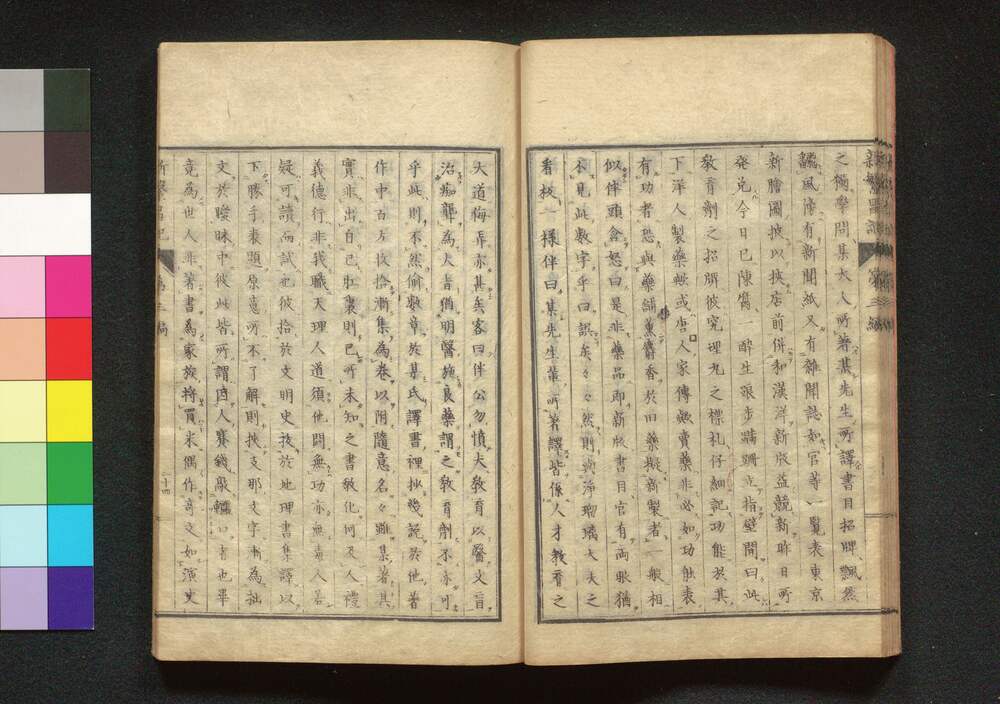 之儞學問某大人所著某先生所譯書目招牌飄然
飜風傍有新聞紙又有雜聞誌如官等一覽表東京
新繪圖披以挾店前併和漢洋新版益競新昨日所
発兌今日已陳腐一醉生踉歩蹣跚立指壁間曰此
教育劑之招牌彼究理丸之標札仔細記功能於其
下洋人製藥歟或唐人家傳歟賣藥非必如功能表
有功者恐與藥舖重麝香於田藥擬新製者一般相
似伴頭含怒曰是非藥品即新版書目官有兩眼猶
不見此數字乎曰誤矣々々然則與淨瑠璃太夫之
看板一樣伴曰某先生輩所著譯皆係人才教育之
大道侮弄亦甚矣客曰伴公勿憤夫教育以醫文盲
治痴聾為大旨猶明醫施良藥謂之教育劑不亦可
乎此則不然偷數章於某氏譯書裡抄幾説於他著
作中右左收拾漸集為卷以附隨意名々雖某著其
實非出自己肚裏則己所未知之書教化何及人禮
義德行非我職天理人道須他問無功亦無責人若
疑可讀而試也彼拾於文明史技於地理書集譯以
下勝手表題原意所不了解則挾支那文字漸為拙
文於曖昧中彼此皆所謂因人賽錢敲鱷口者也畢
竟為世人非著書為家族將買米偶作奇文如演史